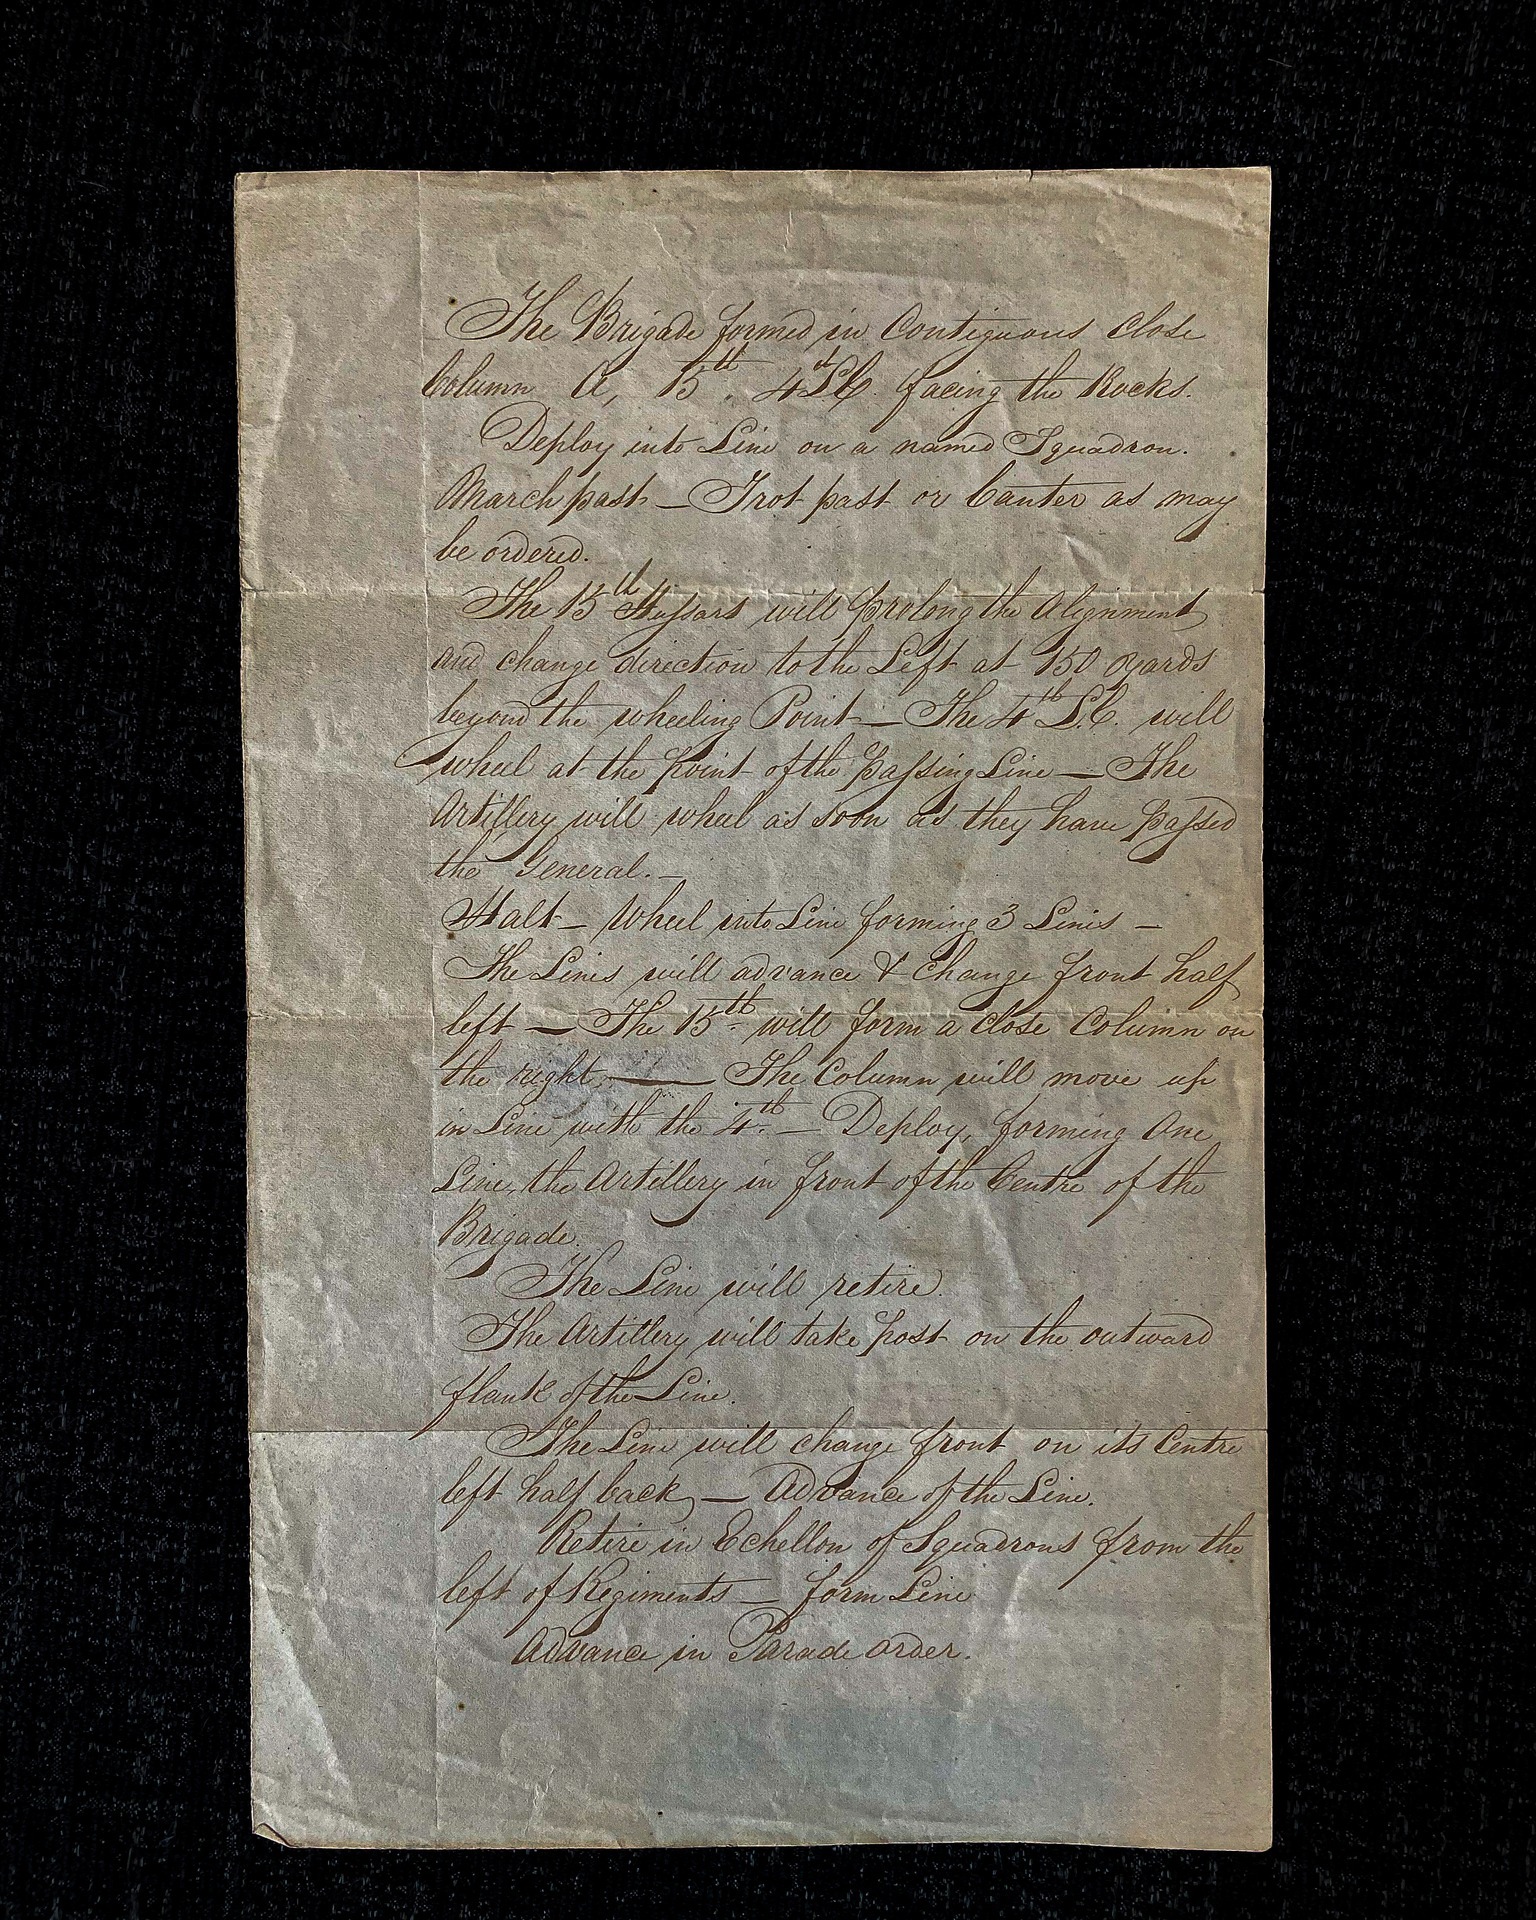 The Brigade formed in Contiguous Close
Column A, 15th, 4th L.C. facing the Rocks.
Deploy into Line on a named Squadron.
March past — Trot past or Canter as may
be ordered.
The 15th Hussars will prolong the Alignment
and change direction to the Left at 150 yards
beyond the wheeling Point — The 4th L.C. will
wheel at the point of the passing Line — The
Artillery will wheel as soon as they have passed
the General. —
Halt — Wheel into Line forming 3 Lines —
The Lines will advance & Change front half
left — The 15th will form a close Column on
the right, — The Column will move up
in Line with the 4th. — Deploy, forming One
Line, the Artillery in front of the Centre of the
Brigade.
The Line will retire.
The Artillery will take post on the outward
flank of the Line.
The Line will change front on its Centre
left half back, — Advance of the Line.
Retire in Echellon of Squadrons from the
left of Regiments — form Line
Advance in Parade order.